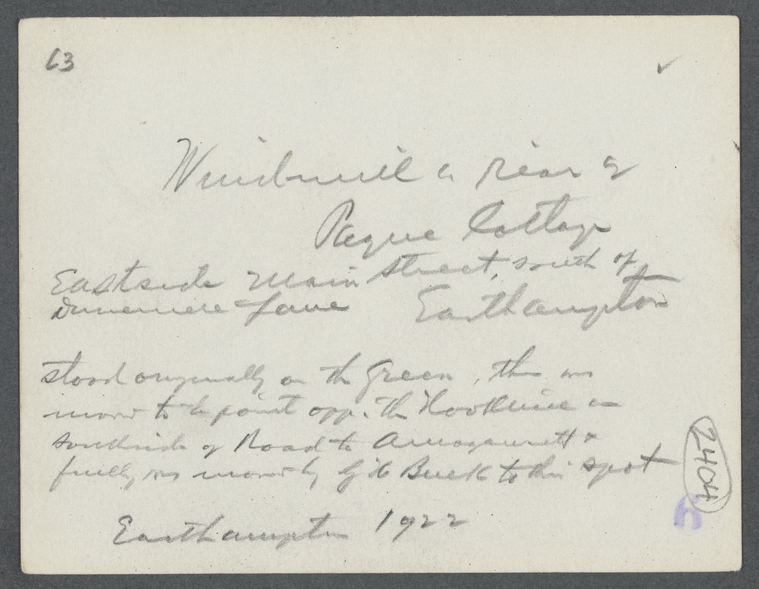 63
Windmill in rear of
Payne Cottage
Eastside Main Street, south of
Dunemere Lane Easthampton
stood originally on the Green, then was
moved to the point opp. the Hook Mill on
southside of Road to Amagansett &
finally was moved by G H Buek to this spot
2404
h
Easthampton 1922